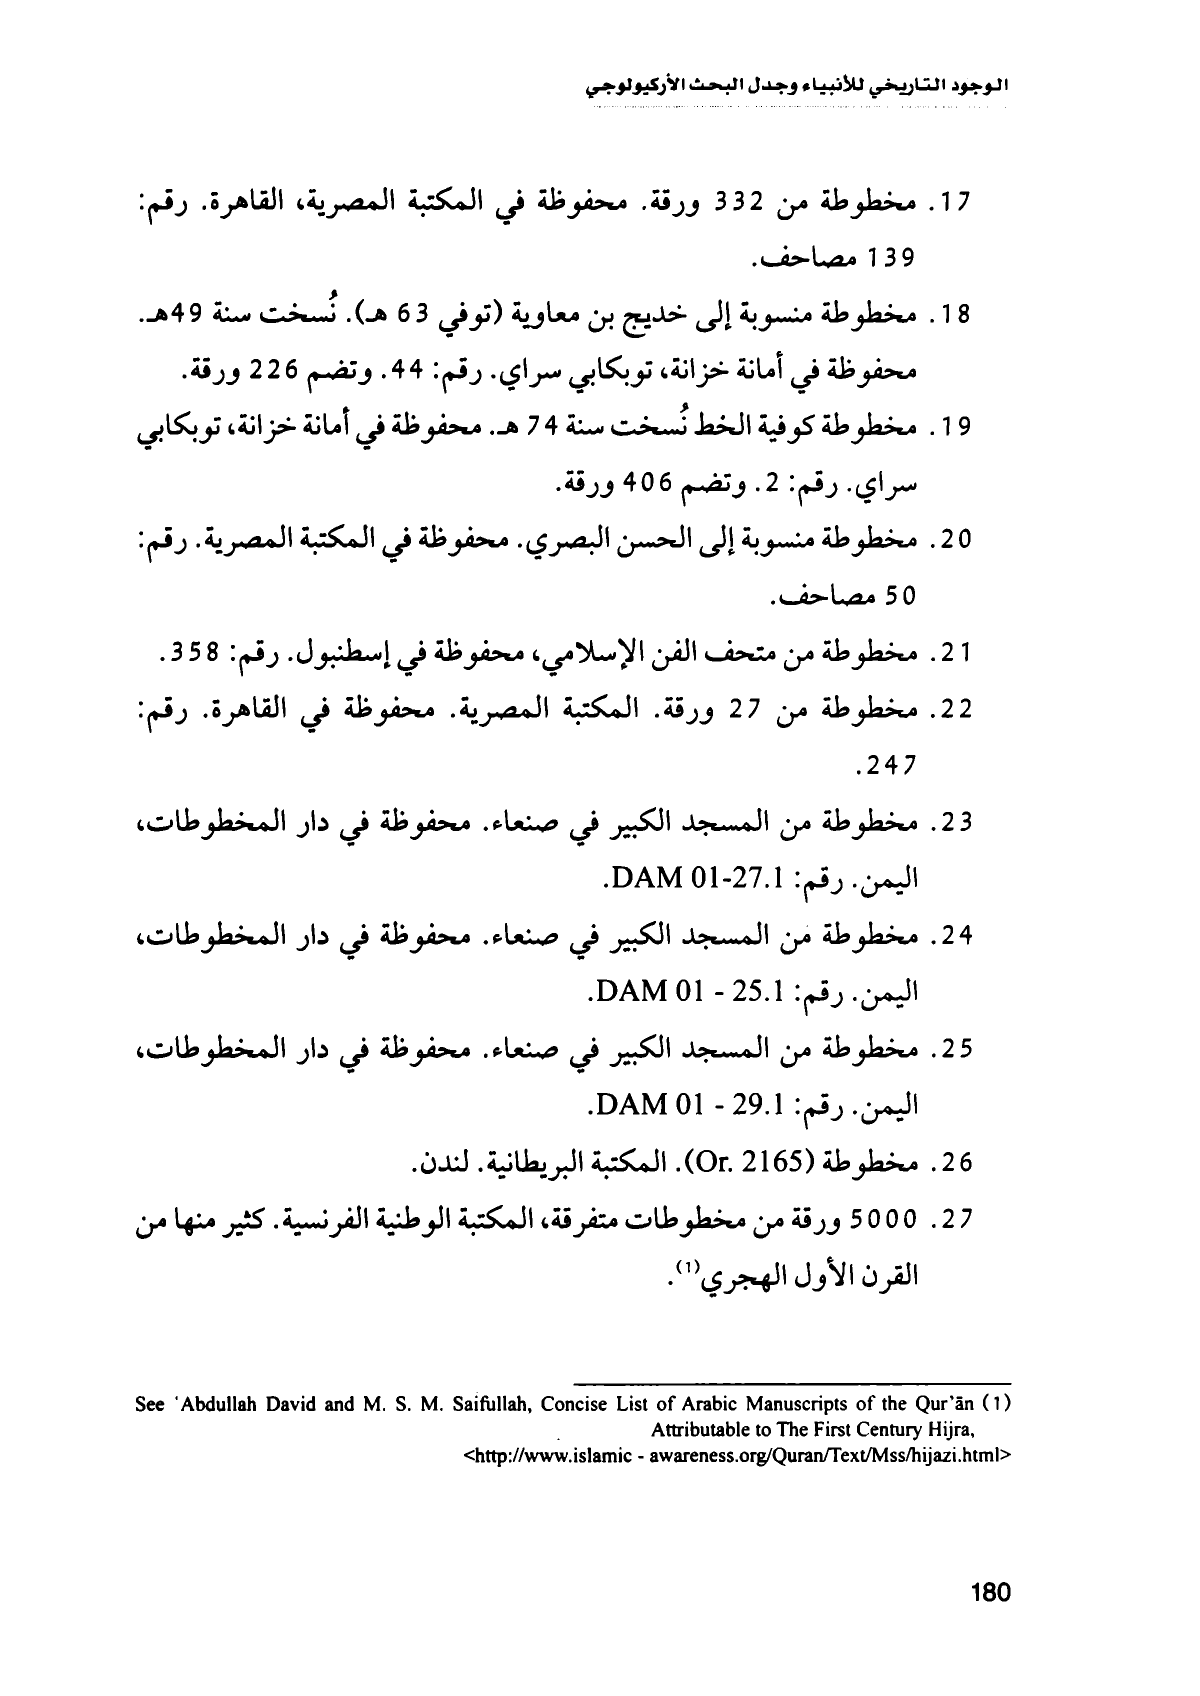 الوجود التاريخي للأنبياء وجدل البحث الأركيولوجي
17. مخطوطة من 332 ورقة. محفوظة في المكتبة المصرية، القاهرة. رقم:
139 مصاحف.
18. مخطوطة منسوبة إلى خديج بن معاوية (توفي 63 هـ). نُسخت سنة 49هـ.
محفوظة في أمانة خزانة، توبكابي سراي. رقم: 44. وتضم 226 ورقة.
19. مخطوطة كوفية الخط نُسخت سنة 74 هـ. محفوظة في أمانة خزانة، توبكابي
سراي. رقم: 2. وتضم 406 ورقة.
20. مخطوطة منسوبة إلى الحسن البصري. محفوظة في المكتبة المصرية. رقم:
50 مصاحف.
21. مخطوطة من متحف الفن الإسلامي، محفوظة في إسطنبول. رقم: 358.
22. مخطوطة من 27 ورقة. المكتبة المصرية. محفوظة في القاهرة. رقم:
247.
23. مخطوطة من المسجد الكبير في صنعاء. محفوظة في دار المخطوطات،
اليمن. رقم: DAM 01-27.1.
24. مخطوطة من المسجد الكبير في صنعاء. محفوظة في دار المخطوطات،
اليمن. رقم: DAM 01 - 25.1.
25. مخطوطة من المسجد الكبير في صنعاء. محفوظة في دار المخطوطات،
اليمن. رقم: DAM 01 - 29.1.
26. مخطوطة (Or. 2165). المكتبة البريطانية. لندن.
27. 5000 ورقة من مخطوطات متفرقة، المكتبة الوطنية الفرنسية. كثير منها من
القرن الأول الهجري(1).
See ‘Abdullah David and M. S. M. Saifullah, Concise List of Arabic Manuscripts of the Qur’ān (1)
Attributable to The First Century Hijra,
<http://www.islamic - awareness.org/Quran/Text/Mss/hijazi.html>
180